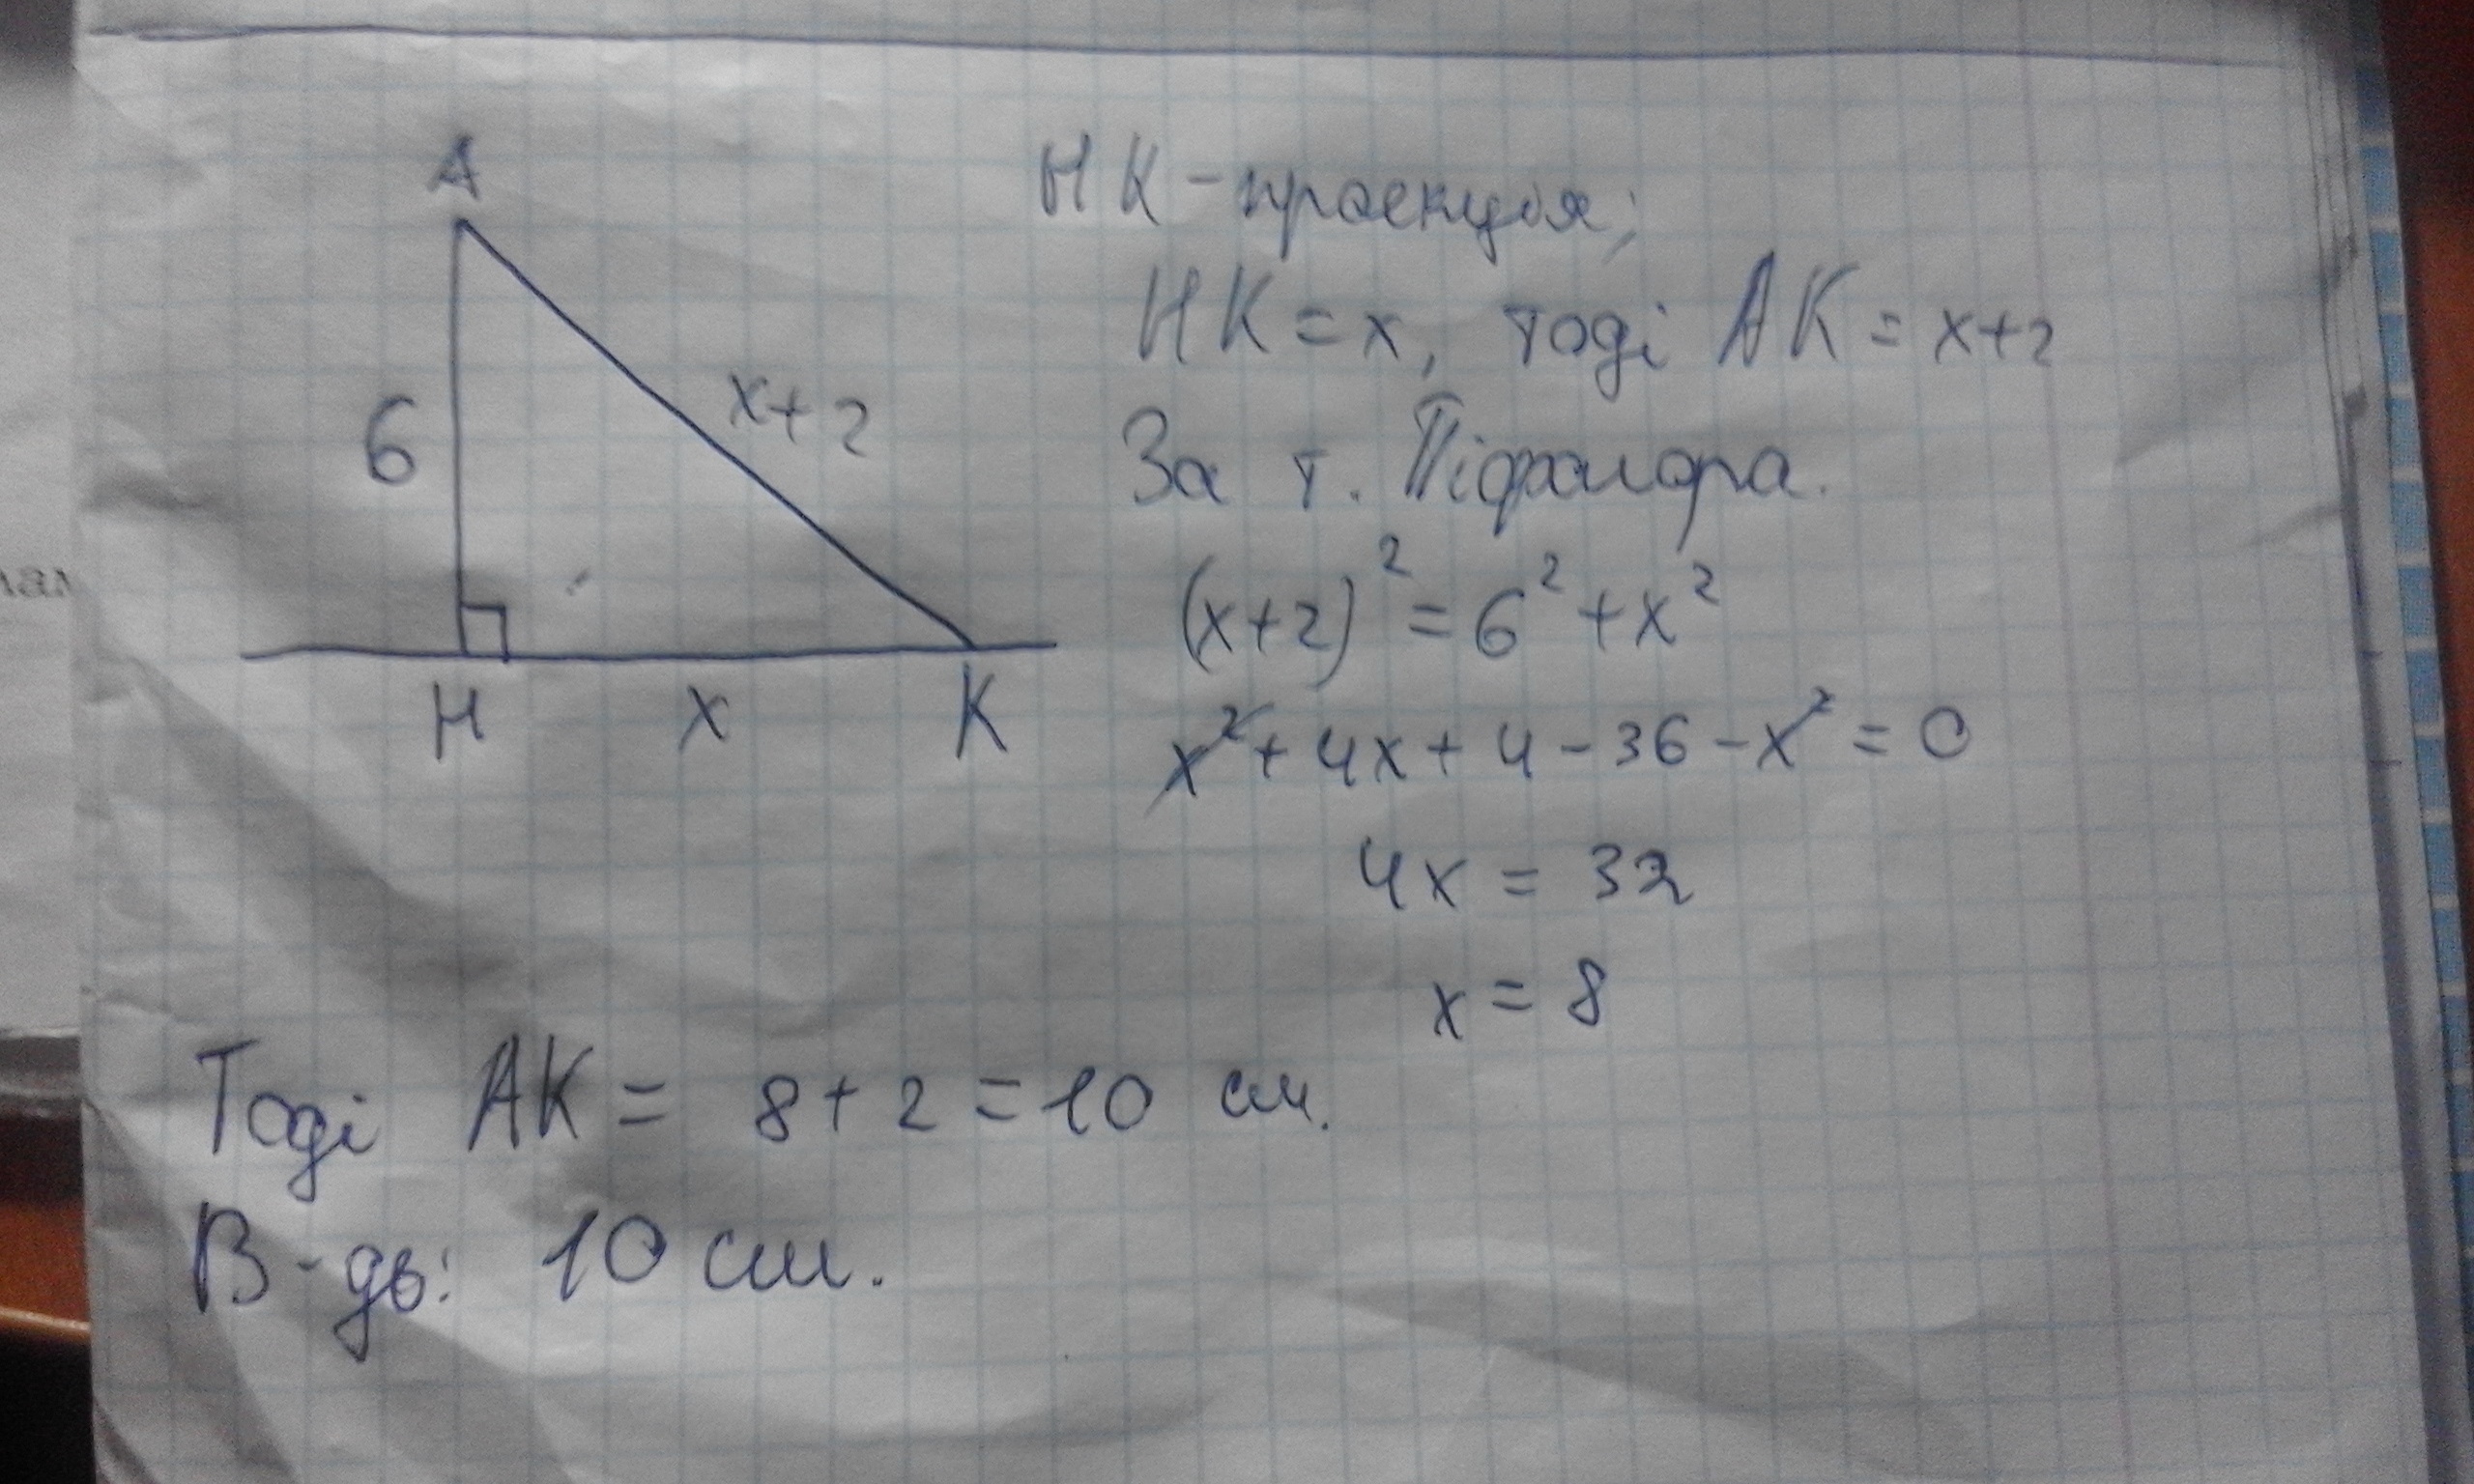 A
6
x+2
H x K
HK - проекція;
HK = x, тоді AK = x+2
За т. Піфагора.
(x+2)² = 6² + x²
x² + 4x + 4 - 36 - x² = 0
4x = 32
x = 8
Тоді AK = 8 + 2 = 10 см.
В-дь: 10 см.